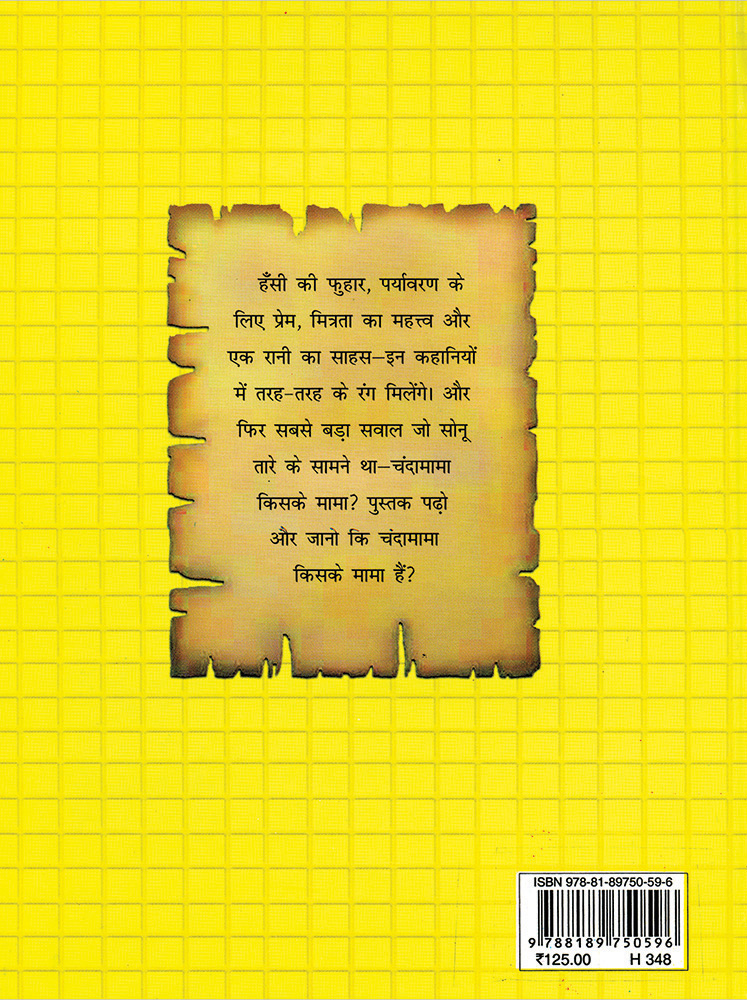 हँसी की फुहार, पर्यावरण के
लिए प्रेम, मित्रता का महत्त्व और
एक रानी का साहस–इन कहानियों
में तरह-तरह के रंग मिलेंगे। और
फिर सबसे बड़ा सवाल जो सोनू
तारे के सामने था–चंदामामा
किसके मामा? पुस्तक पढ़ो
और जानो कि चंदामामा
किसके मामा हैं?
ISBN 978-81-89750-59-6
9 788189 750596
₹125.00 H 348